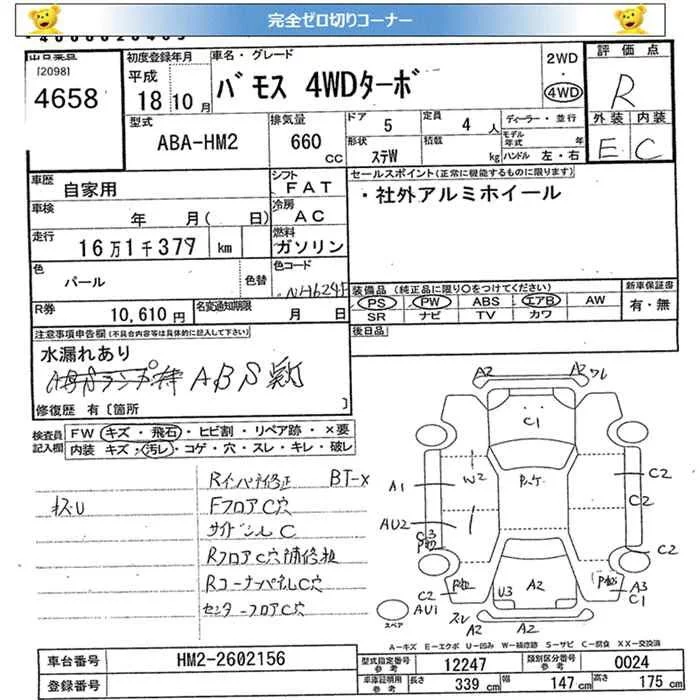 完全ゼロ切りコーナー
出品番号
[2098]
4658
初度登録年月
平成
18年10月
車名・グレード
バモス 4WDターボ
2WD
・
4WD
評価点
R
外装 内装
E C
型式
ABA-HM2
排気量
660
CC
ドア 5
定員 4 人
ディーラー・並行
形状 ステW
積載 kg
モデル年式 年
ハンドル 左・右
車歴 自家用
シフト FAT
セールスポイント(正常に機能するものに限ります)
・社外アルミホイール
車検 年 月( 日)
冷房 AC
走行 16万1千379 km
燃料 ガソリン
色 パール
色替
色コード NH624P
R券 10,610円
名変通知期限 月 日
装備品(純正品に限り○をつけてください)
新車保証書
PS PW ABS エアB AW
SR ナビ TV カワ
有・無
後日品
注意事項申告欄(不具合内容等は具体的に記入して下さい)
水漏れあり
ABSランプ
修復歴 有〔箇所 〕
検査員記入欄
FW キズ・飛石・ヒビ割・リペア跡・×要
内装 キズ・汚レ・コゲ・穴・スレ・キレ・破レ
BT-x
FフロアC穴
サイドシルC
RフロアC穴
RコーナーパネルC穴
センターフロアC穴
A2
A2
C1
A1
W2
C2
AU2
C2
C3
C2
C2
AU1
U3
A2
A3
C1
A2
A2
スペア
A-キズ E-エクボ U-凹み W-補修跡 S-サビ C-腐食 XX-交換済
車台番号 HM2-2602156
型式指定番号 参考 12247
類別区分番号 参考 0024
登録番号
車庫証明用 参考 長さ 339 cm 幅 147 cm 高さ 175 cm